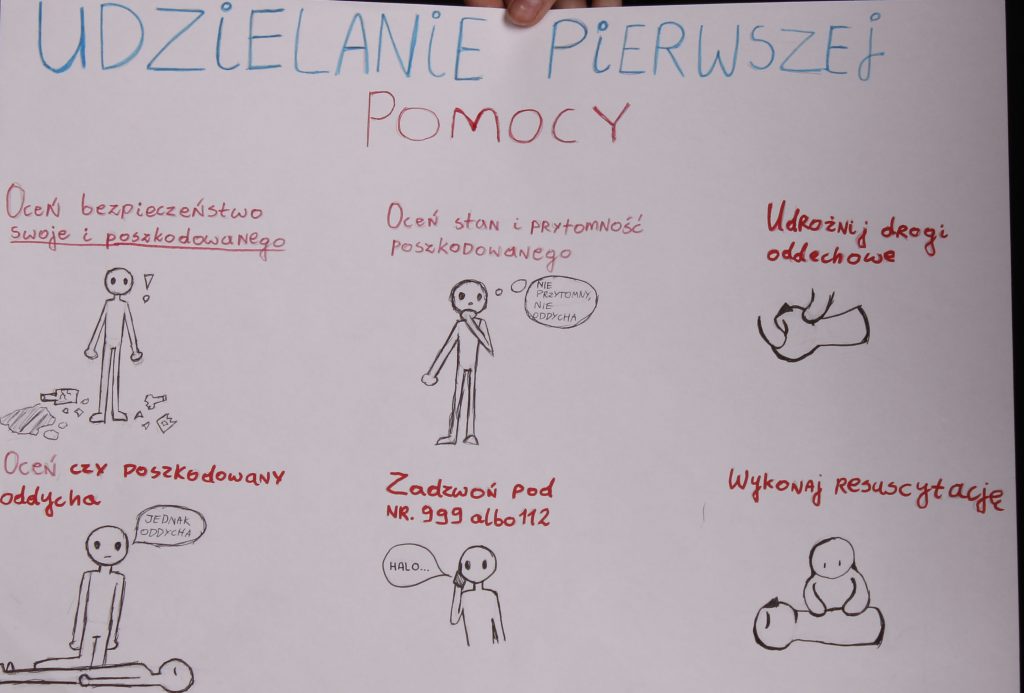 UDZIELANIE PIERWSZEJ
POMOCY
Oceń bezpieczeństwo
swoje i poszkodowanego
Oceń stan i prytomność
poszkodowanego
NIE
PRZYTOMNY,
NIE
ODDYCHA
Udrożnij drogi
oddechowe
Oceń czy poszkodowany
oddycha
JEDNAK
ODDYCHA
Zadzwoń pod
NR. 999 albo 112
HALO...
Wykonaj resuscytację